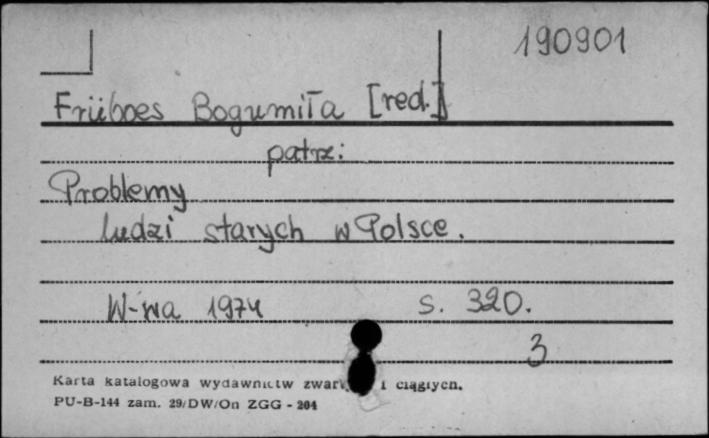 190901
Früboes Bogumiła [red.]
patrz:
Problemy
ludzi starych w Polsce.
W-wa 1974 s. 320.
3
Karta katalogowa wydawnictw i ciągłych.
PU-B-144 zam. 29/DW/On ZGG - 204